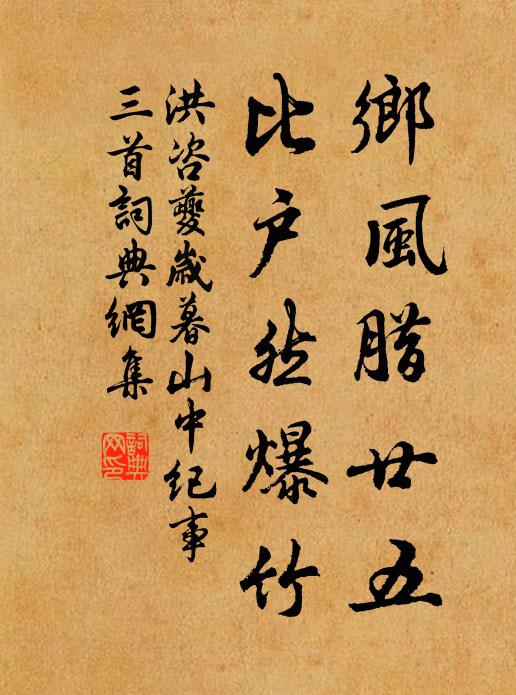 鄉風腊廿五
比户然爆竹
洪咨夔歲暮山中紀事
三首詞典網集
詞典
网印